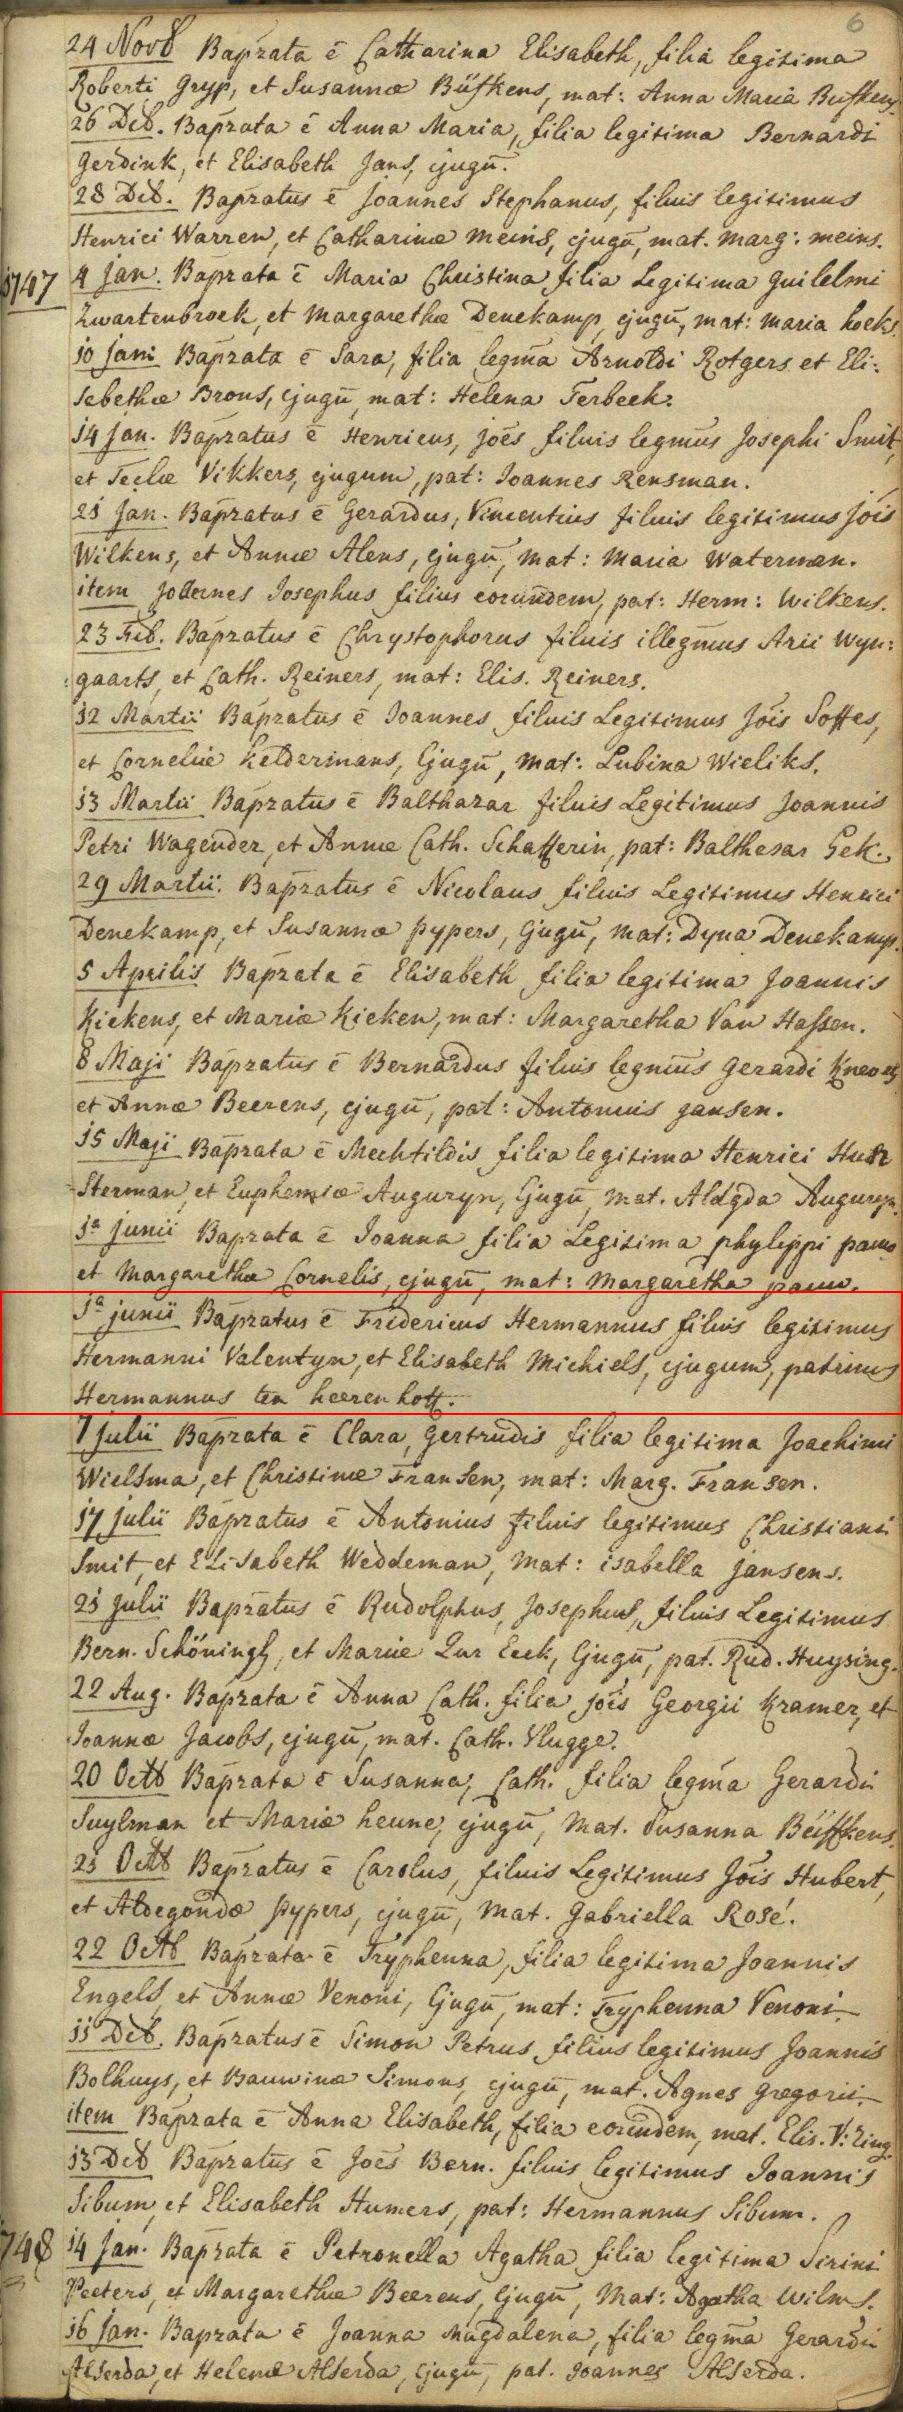 6
24 Novb Baprata ē Catharina Elisabeth, filia legitima
Roberti Gryp, et Susannæ Büfkens, mat: Anna Maria Bufkens.
26 Deb. Baprata ē Anna Maria, filia legitima Bernardi
Gerdink, et Elisabeth Jans, cjugū.
28 Deb. Bapratus ē Joannes Stephanus, filius legitimus
Henrici Warren, et Catharinæ Meins, cjugū, mat. Marg: meins.
1747 4 Jan. Baprata ē Maria Christina filia Legitima Guilelmi
Zwartenbroek, et Margarethæ Denekamp, cjugū, mat: Maria hoeks.
10 Jani Baprata ē Sara, filia legma Arnoldi Rotgers et Eli:
sebethæ Brons, cjugū, mat: Helena Terbeek.
14 Jan. Baprat​us ē Henricus, joēs filius legmus Josephi Smit,
et Teclæ Vikkers, cjugum, pat: Joannes Rensman.
21 Jan. Baprat​us ē Gerardus, Vincentius filius legitimus Jois
Wilkens, et Annæ Alens, cjugū, mat: Maria Waterman.
item Joannes Josephus filius eorundem, pat: Herm: Wilkens.
23 Feb. Baprat​us ē Chrystophorus filius illegmus Arii Wyn:
gaarts, et Cath. Reiners, mat: Elis. Reiners.
12 Martii Baprat​us ē Joannes filius Legitimus Jois Soffes,
et Corneliæ Keldermans, Cjugū, mat: Lubina Wieliks.
13 Martii Baprat​us ē Balthazar filius Legitimus Joannis
Petri Wagender, et Annæ Cath. Schafferin, pat: Balthesar Gek.
29 Martii. Baprat​us ē Nicolaus filius Legitimus Henrici
Denekamp, et Susannæ Pypers, Cjugū, mat: Dyna Denekamp.
5 Aprilis Baprata ē Elisabeth filia legitima Joannis
Kiekens, et Mariæ Kieken, mat: Margaretha Van Hassen.
8 Maji Baprat​us ē Bernardus filius legmus Gerardi
et Annæ Beerens, cjugū, pat: Antonius Jansen.
15 Maji Baprata ē Mechtildis filia legitima Henrici
Sterman, et Euphemiæ Auguryn, Cjugū, mat. Aldgda Auguryn.
1a Junii Baprata ē Joanna filia Legitima phyleppi pauw
et Margarethæ Cornelis, cjugū, mat: Margaretha pauw.
1a Junii Baprat​us ē Fridericus Hermannus filius legitimus
Hermanni Valentyn, et Elisabeth Michiels, cjugum, patrinus
Hermannus ten heerenhoff.
7 Julii Baprata ē Clara, Gertrudis filia legitima Joachimi
Wielsma, et Christinæ Fransen, mat: Marg. Fransen.
17 Julii Baprat​us ē Antonius filius legitimus Christiani
Smit, et Elisabeth Weddeman, mat: isabella Jansens.
21 Julii Baprat​us ē Rudolphus, Josephus, filius Legitimus
Bern. Schöningh, et Mariæ Zur Eeck, Cjugū, pat. Rud. Huysing.
22 Aug. Baprata ē Anna Cath. filia jois Georgii Kramer, et
Joannæ Jacobs, cjugū, mat. Cath. Vlugge.
20 Octb Baprata ē Susanna, Cath. filia legma Gerardi
Suylman et Mariæ heune, cjugū, Mat. Susanna Büffkens.
21 Octb Baprat​us ē Carolus, filius Legitimus Jois Hubert,
et Aldegondæ Pypers, cjugū, Mat. Gabriella Rosé.
22 Octb Baprata ē Tryphenna, filia legitima Joannis
Engels, et Annæ Venoni, Cjugū, mat: Tryphenna Venoni.
11 Deb. Baprat​us ē Simon Petrus filius legitimus Joannis
Bolhuys, et Bauwinæ Simons, cjugū, mat. Agnes Gregorii.
item Baprata ē Anna Elisabeth, filia eorundem, mat. Elis. V: Zing.
13 Deb Baprat​us ē Joēs Bern. filius legitimus Joannis
Sibum, et Elisabeth Humers, pat: Hermannus Sibum.
748 14 Jan. Baprata ē Petronella Agatha filia legitima Sirini
Peeters, et Margarethæ Beerens, Cjugū, Mat: Agatha Wilms.
16 Jan. Baprata ē Joanna Magdalena, filia legma Gerardi
Alserda, et Helenæ Alserda, Cjugū, pat. Joannes Alserda.